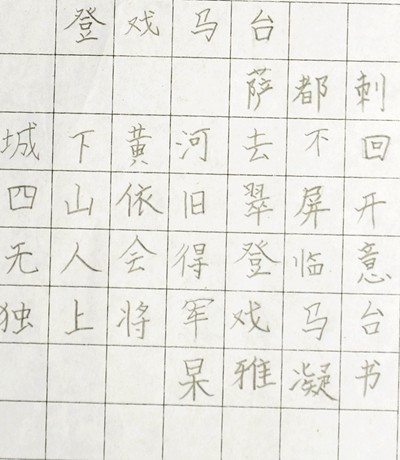 登戏马台
萨都刺
城下黄河去不回
四山依旧翠屏开
无人会得登临意
独上将军戏马台
杲雅凝书